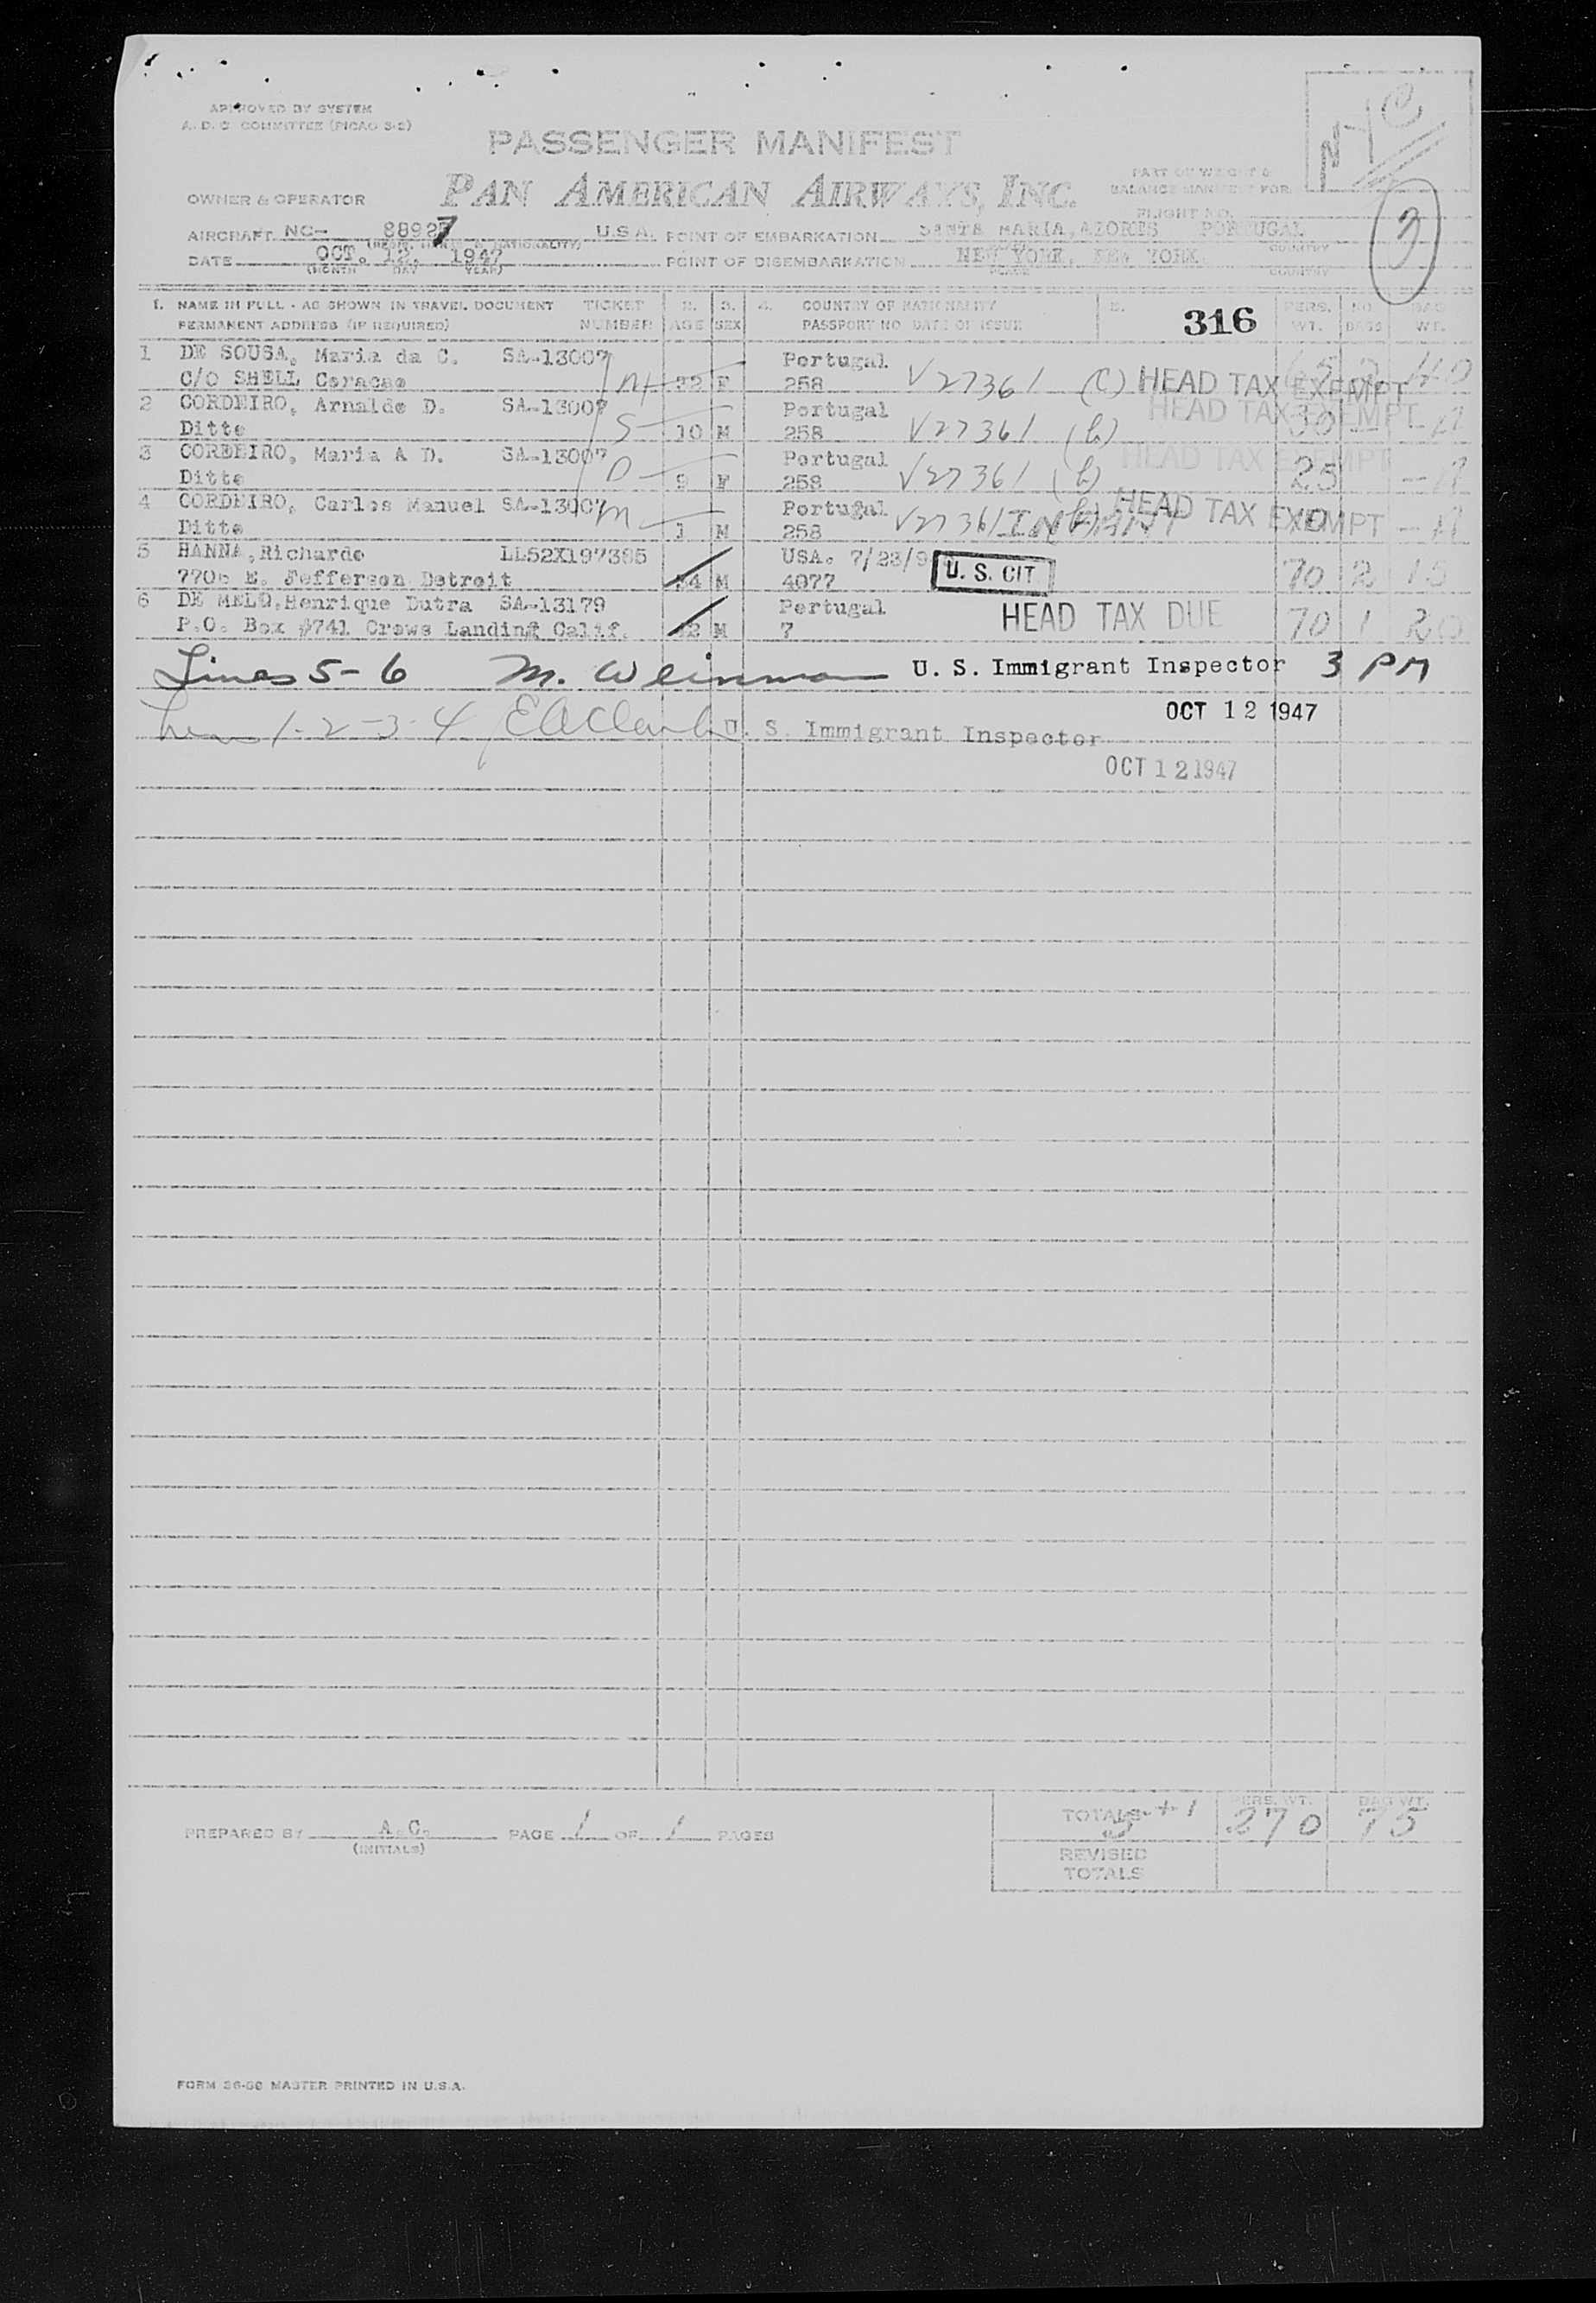 APPROVED BY SYSTEM
A. D. C. COMMITTEE (PICAO 3-2)
PASSENGER MANIFEST
N Y C
OWNER & OPERATOR PAN AMERICAN AIRWAYS, INC.
PART OF WEIGHT &
BALANCE MANIFEST FOR
FLIGHT NO.
3
AIRCRAFT NC- 88927 U.S.A. POINT OF EMBARKATION SANTA MARIA, AZORES PORTUGAL
(REGIS. MARKS & NATIONALITY) COUNTRY
DATE OCT. 12, 1947 POINT OF DISEMBARKATION NEW YORK, NEW YORK.
(MONTH DAY YEAR) PLACE COUNTRY
1. NAME IN FULL - AS SHOWN IN TRAVEL DOCUMENT TICKET 2. 3. 4. COUNTRY OF NATIONALITY 5. 316 PERS. NO. BAG
PERMANENT ADDRESS (IF REQUIRED) NUMBER AGE SEX PASSPORT NO. DATE OF ISSUE WT. BAGS WT.
1 DE SOUSA, Maria da C. SA-13007 Portugal
C/O SHELL Coracao M 32 F 258 V27361 (C) HEAD TAX EXEMPT 40
2 CORDEIRO, Arnaldo D. SA-13007 Portugal HEAD TAX EXEMPT
Ditto S 10 M 258 V27361 (h) 30
3 CORDEIRO, Maria A D. SA-13007 Portugal HEAD TAX EXEMPT
Ditto D 9 F 258 V27361 (h) 25
4 CORDEIRO, Carlos Manuel SA-13007 Portugal HEAD TAX EXEMPT
Ditto M 1 M 258 V27361 INFANT 10
5 HANNA, Richardo LL52X197385 USA. 7/23/9 U. S. CIT.
E. Jefferson Detroit 34 M 4077 70 2 15
6 DE MELO, Henrique Dutra SA-13179 Portugal HEAD TAX DUE
P.O. Box #741 Crows Landing Calif. M 7 70 1 20
Lines 5-6 M. Weinman U. S. Immigrant Inspector 3 PM
OCT 12 1947
Lines 1-2-3-4 U. S. Immigrant Inspector
OCT 12 1947
TOTALS 5 +1 PERS. WT. 270 BAG WT. 75
PREPARED BY A.C. PAGE 1 OF 1 PAGES
(INITIALS)
REVISED
TOTALS
FORM 36-50 MASTER PRINTED IN U.S.A.